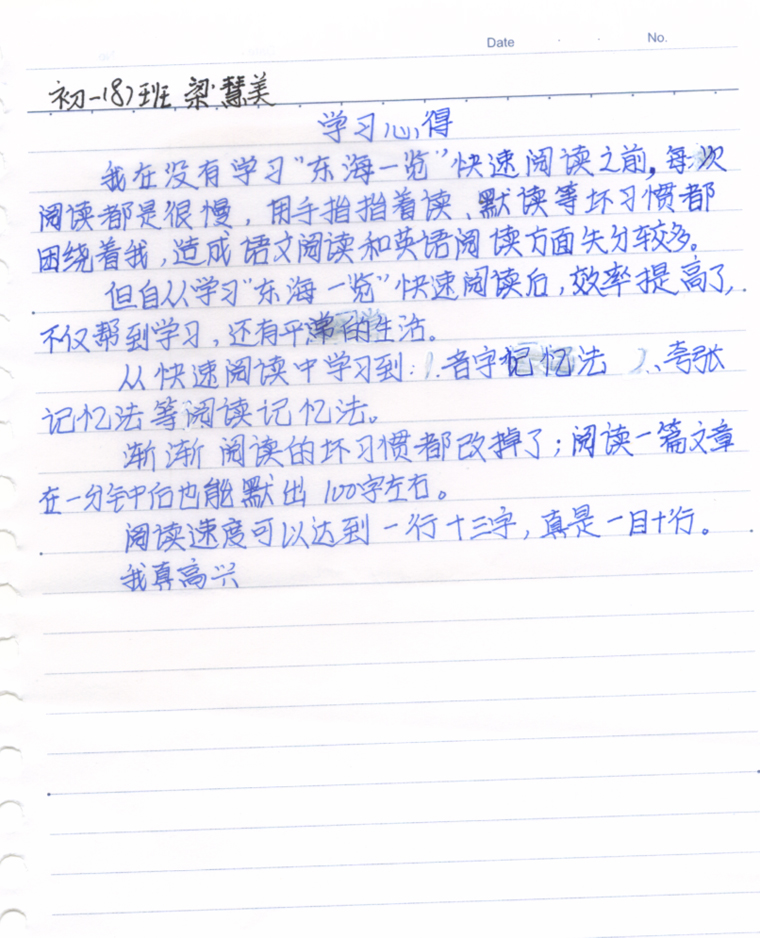 Date . . No.
初一(8)班 梁慧美
学习心得
我在没有学习"东海一览"快速阅读之前，每次
阅读都是很慢，用手指指着读、默读等坏习惯都
困绕着我，造成语文阅读和英语阅读方面失分较多。
但自从学习"东海一览"快速阅读后，效率提高了，
不仅帮到学习，还有平常的生活。
从快速阅读中学习到：1.音字记忆法 2、夸张
记忆法等阅读记忆法。
渐渐阅读的坏习惯都改掉了；阅读一篇文章
在一分钟后也能默出100字左右。
阅读速度可以达到一行十三字，真是一目十行。
我真高兴